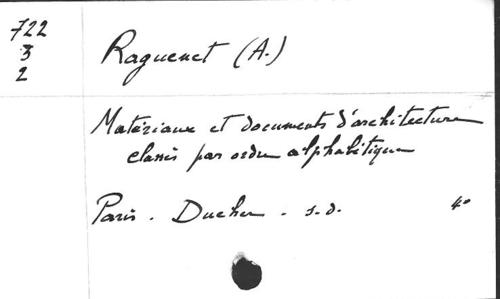 722
3
2
Raguenet (A.)
Matériaux et documents d'architecture
classés par ordre alphabétique
Paris . Ducher . s.d. 4°